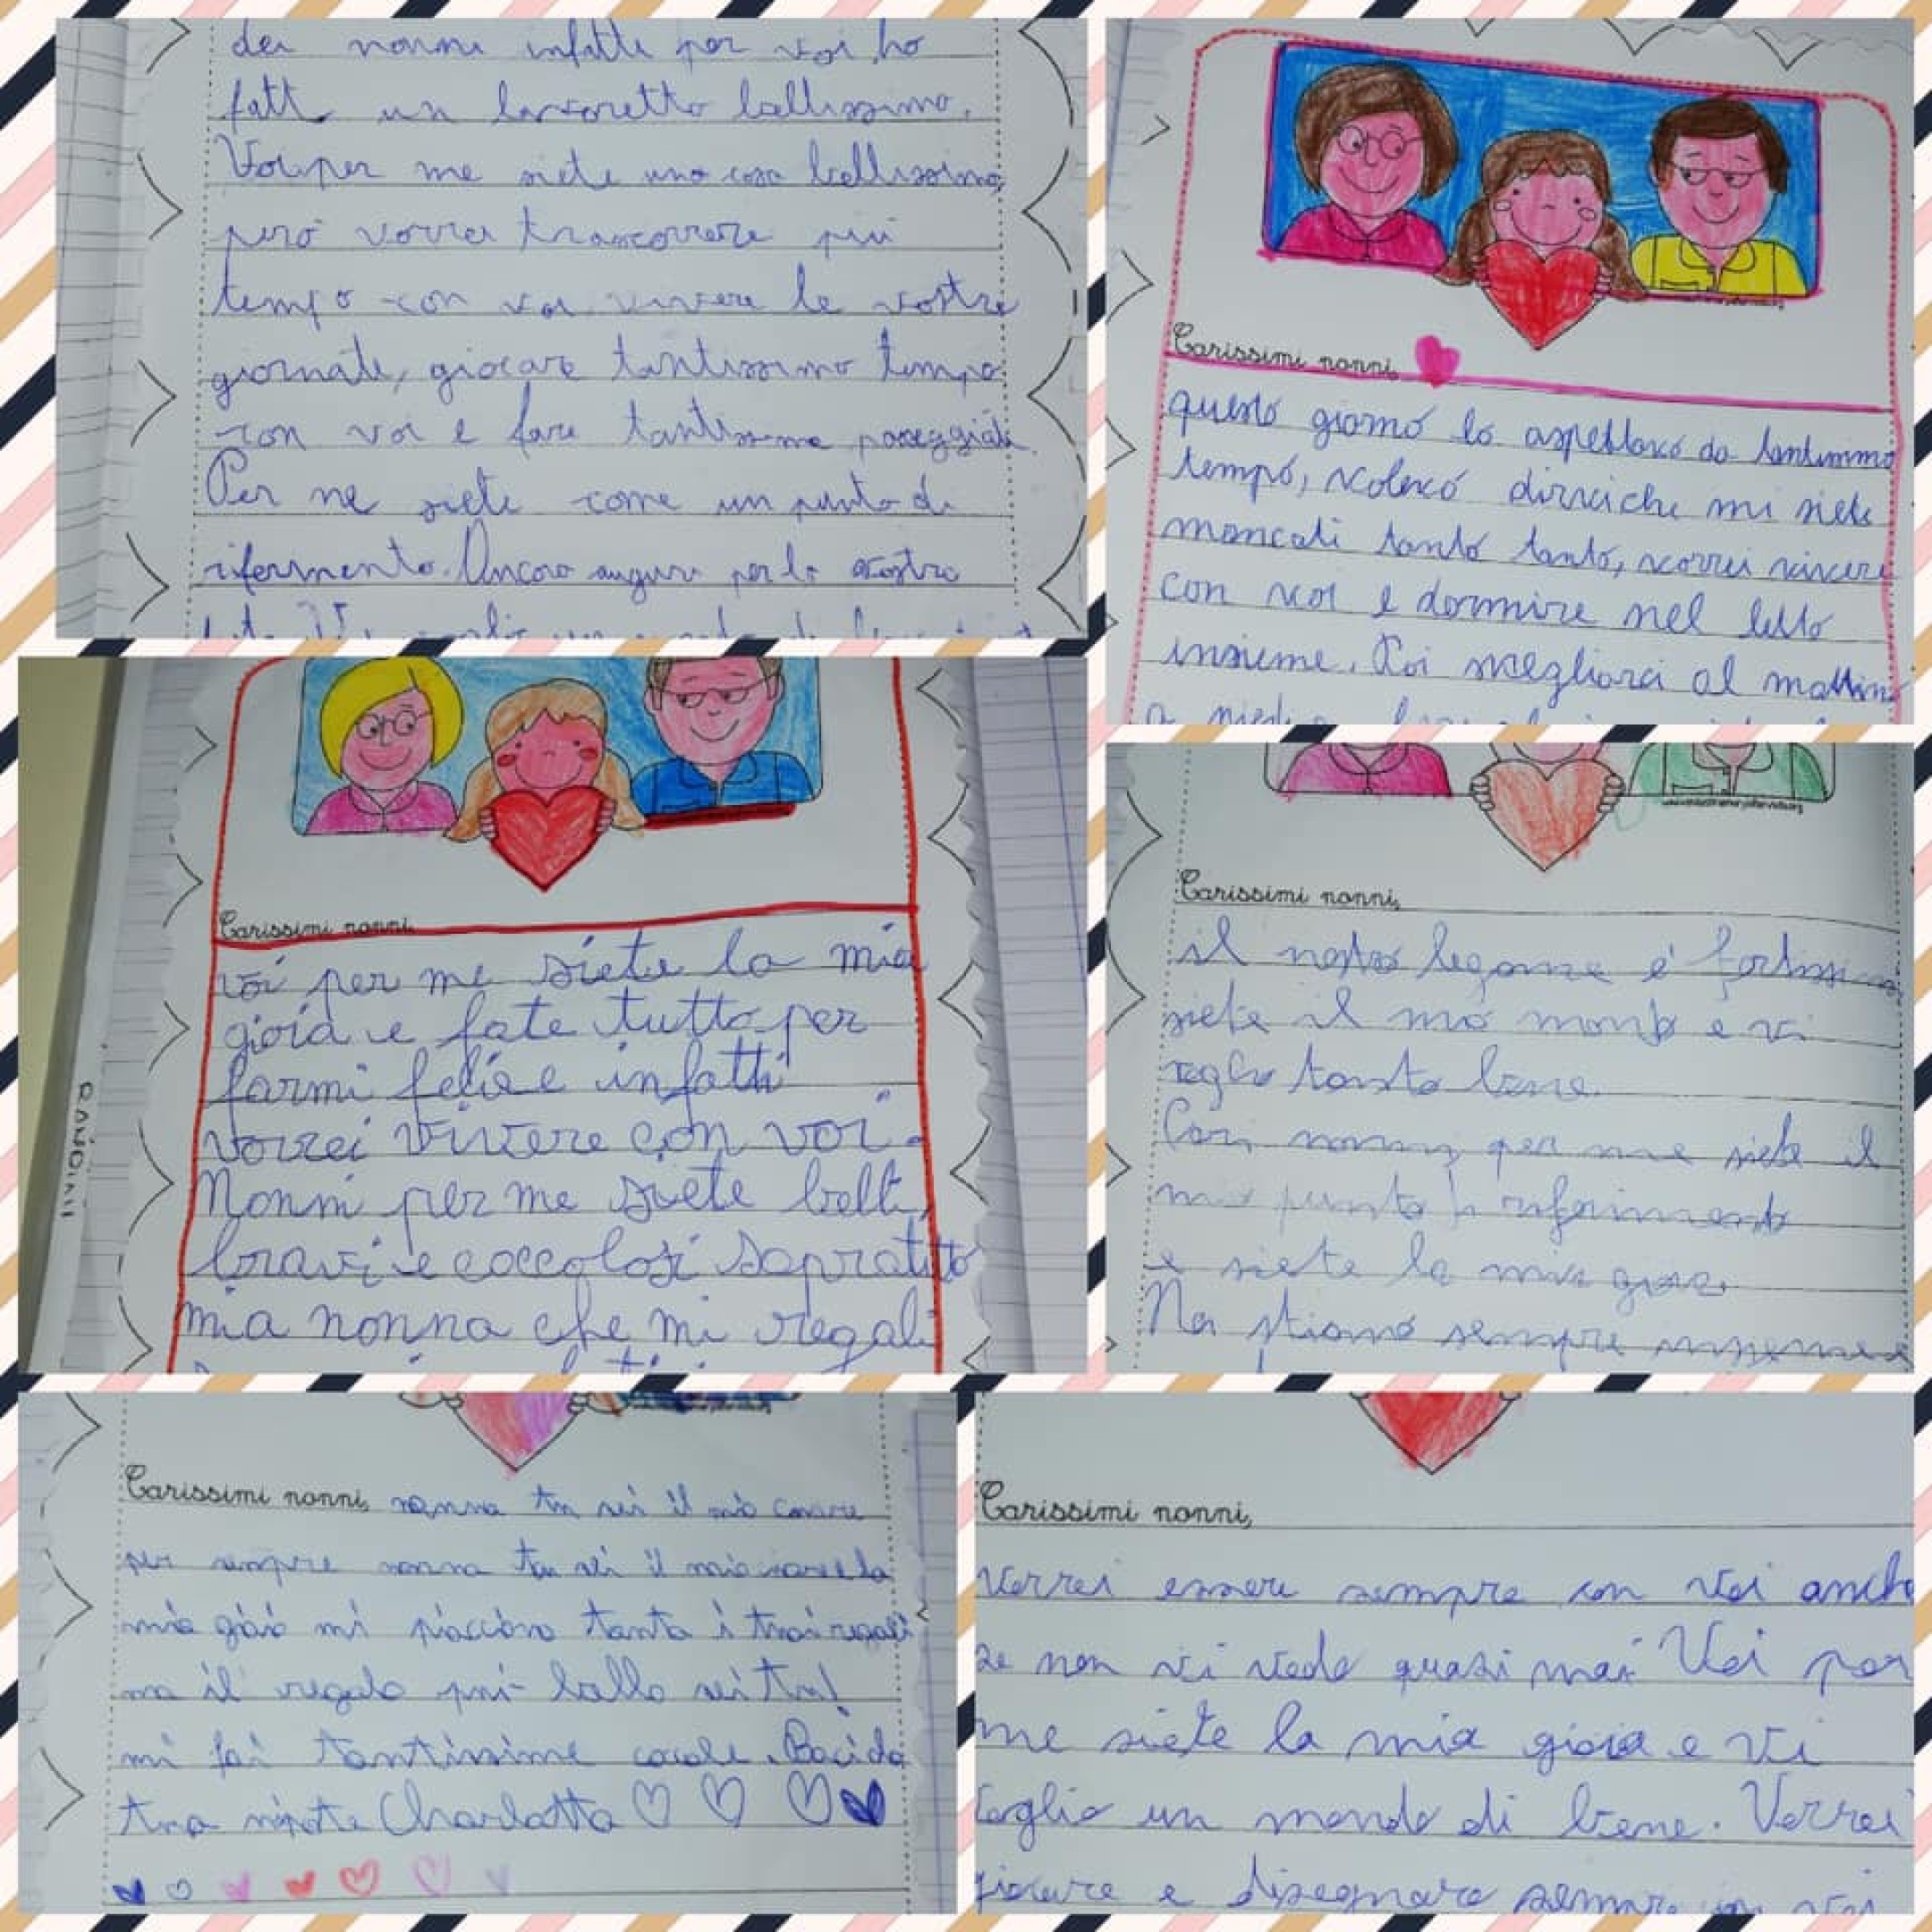 dei nonni infatti per voi ho
fatt un lavoretto bellissimo.
Voi per me siete una cosa bellissima,
però vorrei trascorrere più
tempo con voi vivere le vostre
giornate, giocare tantissimo tempo
con voi e fare tantissime passeggiate.
Per me siete come un punto di
riferimento. Ancora auguri per la vostra
Carissimi nonni,
questo giorno lo aspettavo da tantissimo
tempo, volevo dirvi che mi siete
mancati tanto tanto, vorrei vivere
con voi e dormire nel letto
insieme. Poi svegliarci al mattino
Carissimi nonni,
voi per me siete la mia
gioia e fate tutto per
farmi felice infatti
vorrei vivere con voi.
Nonni per me siete belli,
bravi e coccolosi sopratutto
mia nonna che mi regali
RANDINI
Carissimi nonni,
il nostro legame è fortissimo
siete il mio mondo e vi
voglio tanto bene.
Cari nonni, per me siete il
mio punto di riferimento
e siete la mia gioia.
Noi stiamo sempre insieme e
Carissimi nonni, nonna tu sei il mio cuore
per sempre nonna tu sei il mio la
mia gioia mi piacciono tanto i tuoi regali
ma il regalo più bello sei tu!
mi fai tantissime coccole. Baci da
tua nipote Charlotte
Carissimi nonni,
Vorrei essere sempre con voi anche
se non vi vedo quasi mai Voi per
me siete la mia gioia e vi
voglio un mondo di bene. Vorrei
giocare e disegnare sempre con voi